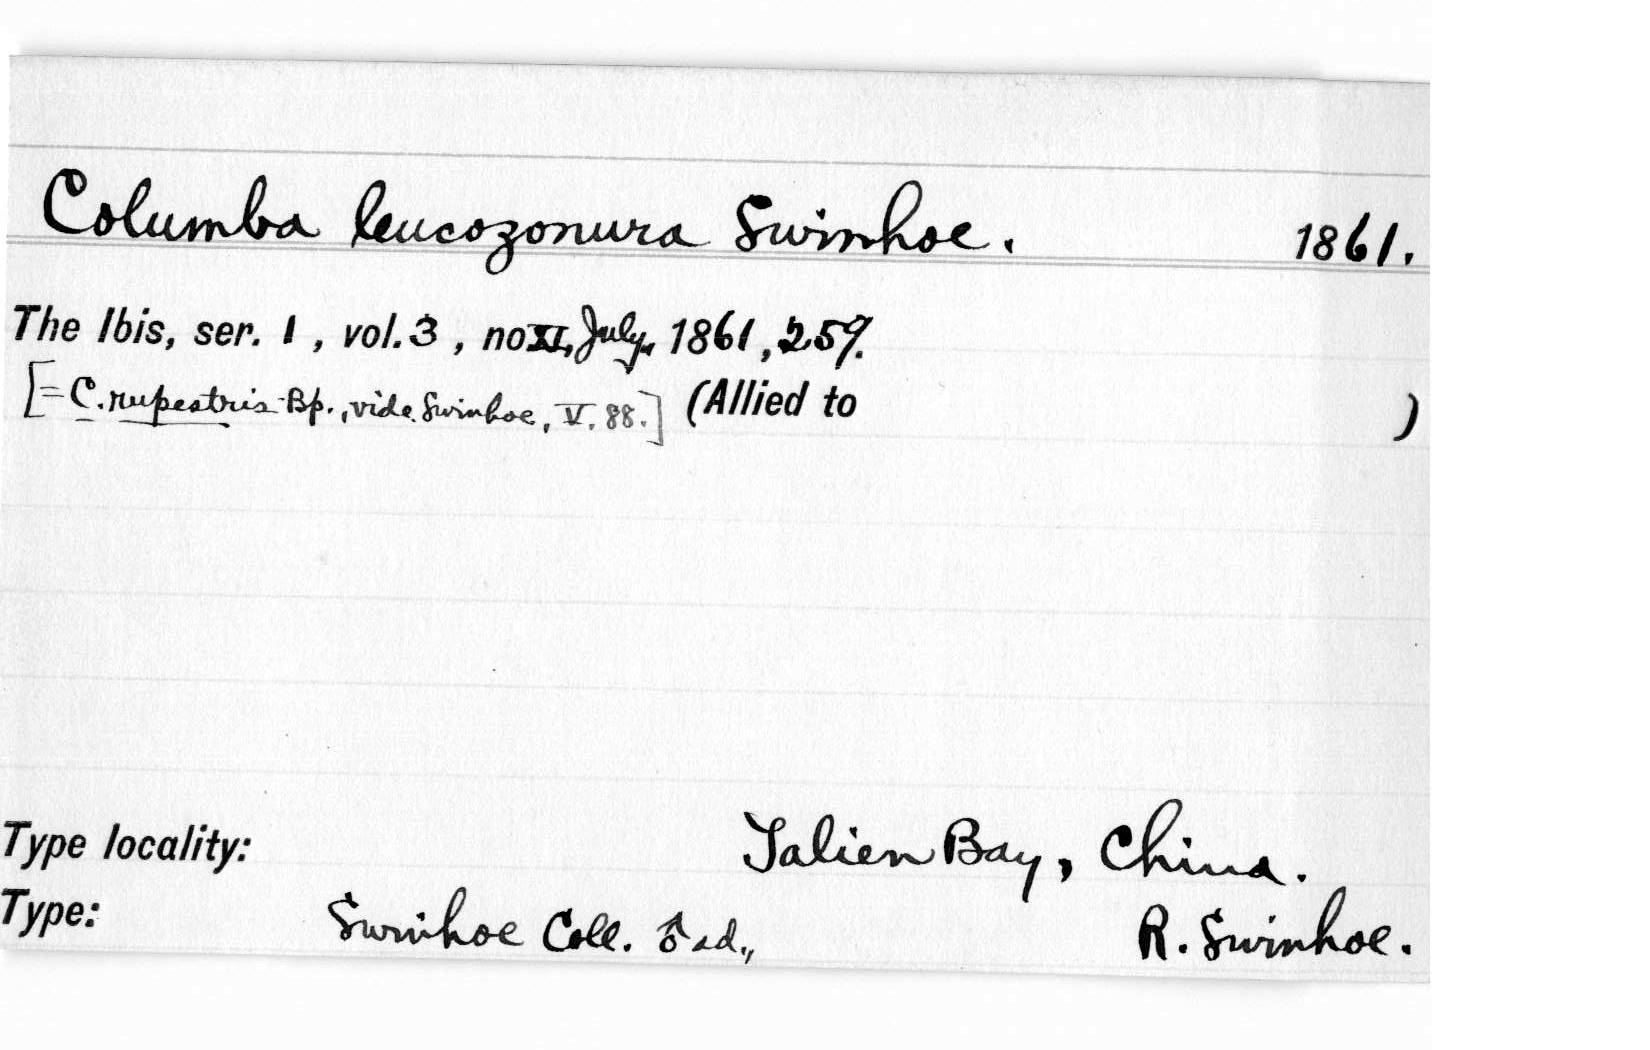 Columba leucozonura Swinhoe. 1861.
The Ibis, ser. 1, vol. 3, no XI, July, 1861, 259.
[= C. rupestris Bp., vide Swinhoe, V. 88.] (Allied to )
Type locality: Talien Bay, China.
Type: Swinhoe Coll. ♂ ad., R. Swinhoe.